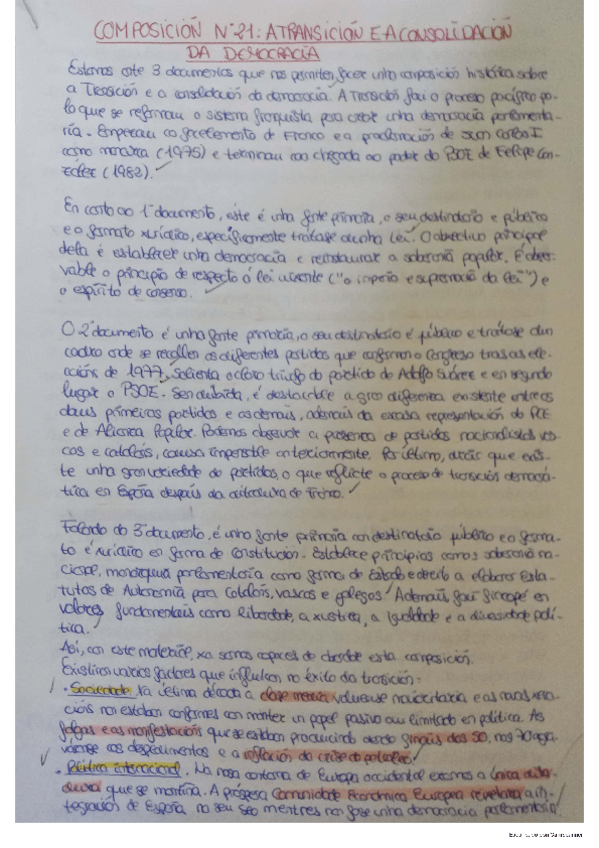 COMPOSICIÓN Nº21: A TRANSICIÓN E A CONSOLIDACIÓN
DA DEMOCRACIA
Estamos ante 3 documentos que nos permiten facer unha composición histórica sobre
a Transición e a consolidación da democracia. A Transición foi o proceso pacífico po-
lo que se reformou o sistema franquista para crear unha democracia parlamenta-
ria. Empezou co falecemento de Franco e a proclamación de Juan Carlos I
como monarca (1975) e terminou coa chegada ao poder do PSOE de Felipe Gon-
zález (1982).
En canto ao 1º documento, este é unha fonte primaria, o seu destinatario é público
e o formato xurídico, especificamente trátase dunha Lei. O obxectivo principal
dela é establecer unha democracia e reinstaurar a soberanía popular. É obser-
vable o principio de respecto á lei vixente ("o imperio e supremacía da lei") e
o espírito de consenso.
O 2º documento é unha fonte primaria, o seu destinatario é público e trátase dun
cadro onde se recollen os diferentes partidos que conforman o Congreso tras as ele-
ccións de 1977. Salienta o claro triunfo do partido de Adolfo Suárez e en segundo
lugar o PSOE. Sen dúbida, é destacable a gran diferenza existente entre os
dous primeiros partidos e os demais, ademais da escasa representación do PCE
e de Alianza Popular. Podemos observar a presenza de partidos nacionalistas vas-
cos e cataláns, cousa imposible anteriormente. Por último, dicir que exis-
te unha gran variedade de partidos, o que reflicte o proceso de transición democrá-
tica en España despois da ditadura de Franco.
Falando do 3º documento, é unha fonte primaria con destinatario público e o forma-
to é xurídico en forma de Constitución. Establece principios como a soberanía na-
cional, monarquía parlamentaria como forma de Estado e dereito a elaborar Esta-
tutos de Autonomía para cataláns, vascos e galegos. Ademais, fai fincapé en
valores fundamentais como liberdade, a xustiza, a igualdade e a diversidade polí-
tica.
Así, con este material, xa somos capaces de abordar esta composición.
Existiron varios factores que influíron no éxito da transición:
· Sociedade. Na última década a clase media volveuse maioritaria e as novas xera-
cións non estaban conformes con manter un papel pasivo ou limitado en política. As
folgas e as manifestacións que se estaban producindo dende finais dos 50, nos 70 agra-
váronse aos despedimentos e a inflación da crise do petróleo.
· Política internacional. Na nosa contorna de Europa occidental eramos a única dita-
dura que se mantiña. A próspera Comunidade Económica Europea rexeitaba a in-
tegración de España no seu seo mentres non fose unha democracia parlamentaria.